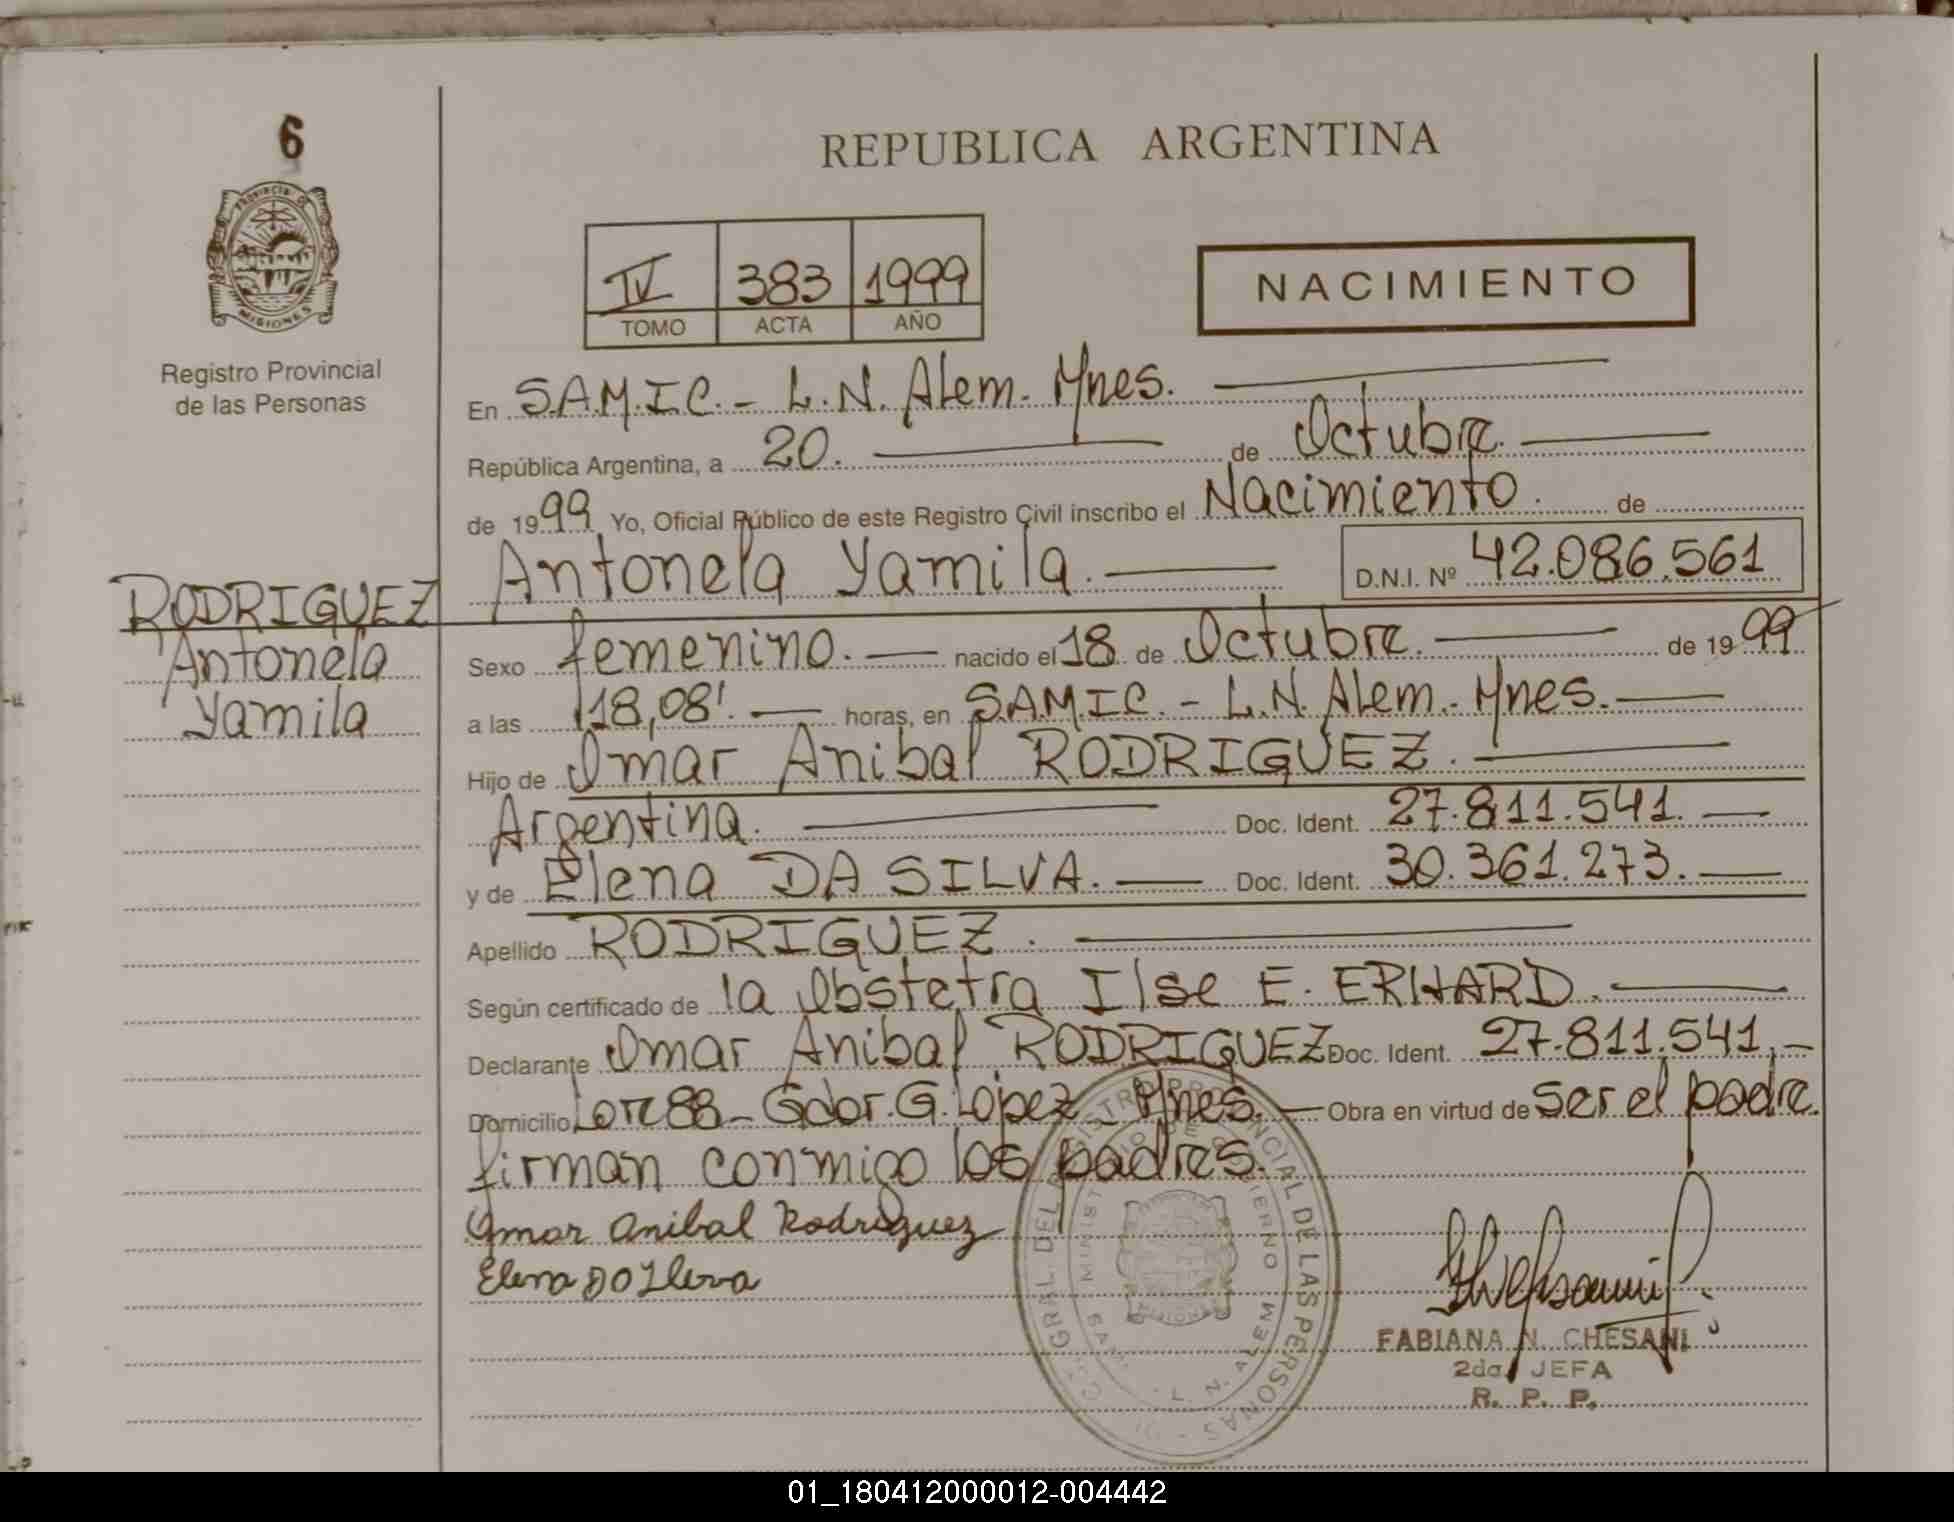 6
PROVINCIA DE
MISIONES
Registro Provincial
de las Personas
RODRIGUEZ
Antonela
Yamila
REPUBLICA ARGENTINA
IV 383 1999
TOMO ACTA AÑO
NACIMIENTO
En S.A.M.I.C. - L.N. Alem. Mnes.
República Argentina, a 20. de Octubre.
de 1999 Yo, Oficial Público de este Registro Civil inscribo el Nacimiento. de
Antonela Yamila. D.N.I. Nº 42.086.561
Sexo femenino. nacido el 18 de Octubre. de 1999
a las 18,08'. horas, en S.A.M.I.C. - L.N. Alem. - Mnes.
Hijo de Omar Anibal RODRIGUEZ.
Argentina. Doc. Ident. 27.811.541.
y de Elena DA SILVA. Doc. Ident. 30.361.273.
Apellido RODRIGUEZ.
Según certificado de la Obstetra Ilse E. ERHARD.
Declarante Omar Anibal RODRIGUEZ Doc. Ident. 27.811.541.
Domicilio Lote 88 - Gdor. G. López Mnes. Obra en virtud de ser el padre.
firman conmigo los padres.
Omar Anibal Rodriguez
Elena
GRAL. DEL REGISTRO PROVINCIAL DE LAS PERSONAS
L. N. ALEM
MISIONES
FABIANA N. CHESANI
2da. JEFA
R. P. P.
01_180412000012-004442